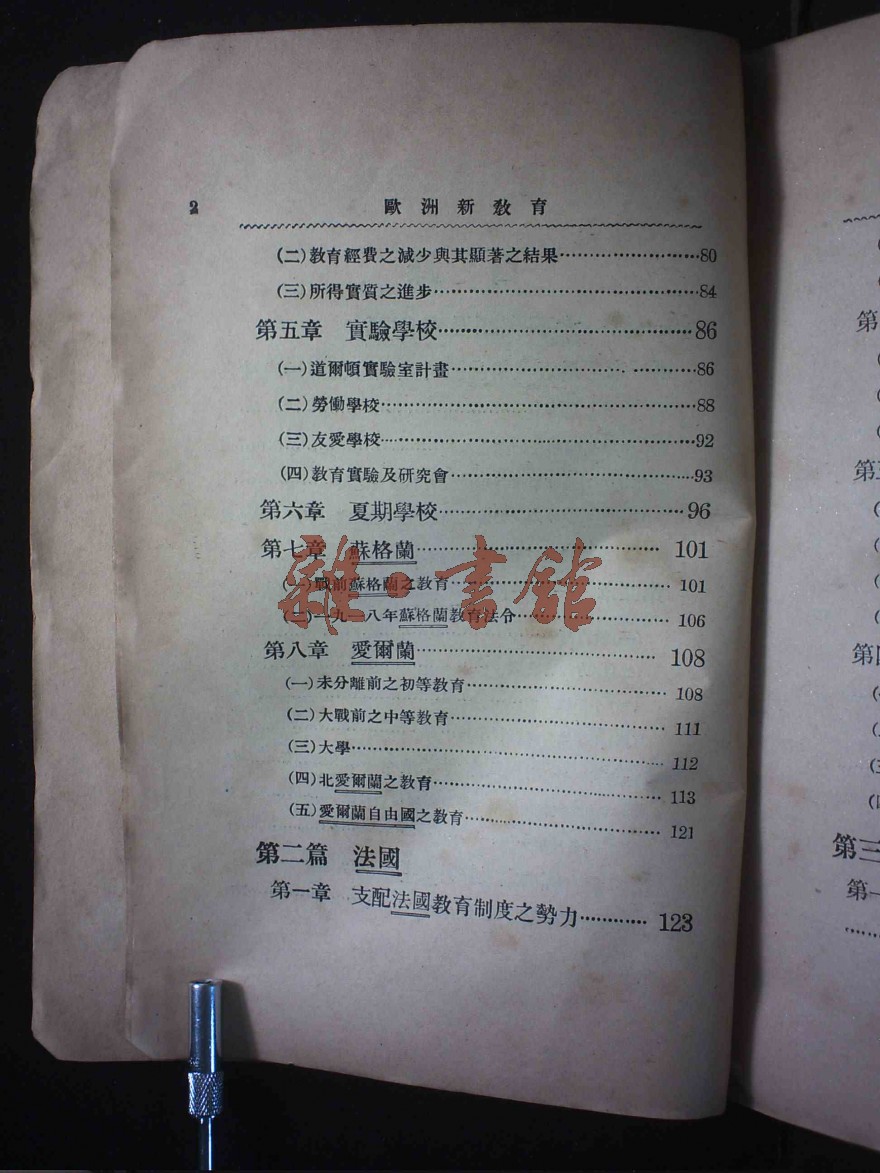 2 歐洲新教育
(二)教育經費之減少與其顯著之結果……………………80
(三)所得實質之進步……………………84
第五章 實驗學校……………………86
(一)道爾頓實驗室計畫……………………86
(二)勞働學校……………………88
(三)友愛學校……………………92
(四)教育實驗及研究會……………………93
第六章 夏期學校……………………96
第七章 蘇格蘭……………………101
(一)戰前蘇格蘭之教育……………………101
(二)一九一八年蘇格蘭教育法令……………………106
第八章 愛爾蘭……………………108
(一)未分離前之初等教育……………………108
(二)大戰前之中等教育……………………111
(三)大學……………………112
(四)北愛爾蘭之教育……………………113
(五)愛爾蘭自由國之教育……………………121
第二篇 法國
第一章 支配法國教育制度之勢力…………123
雜·書館
第
第
第
第三
第一